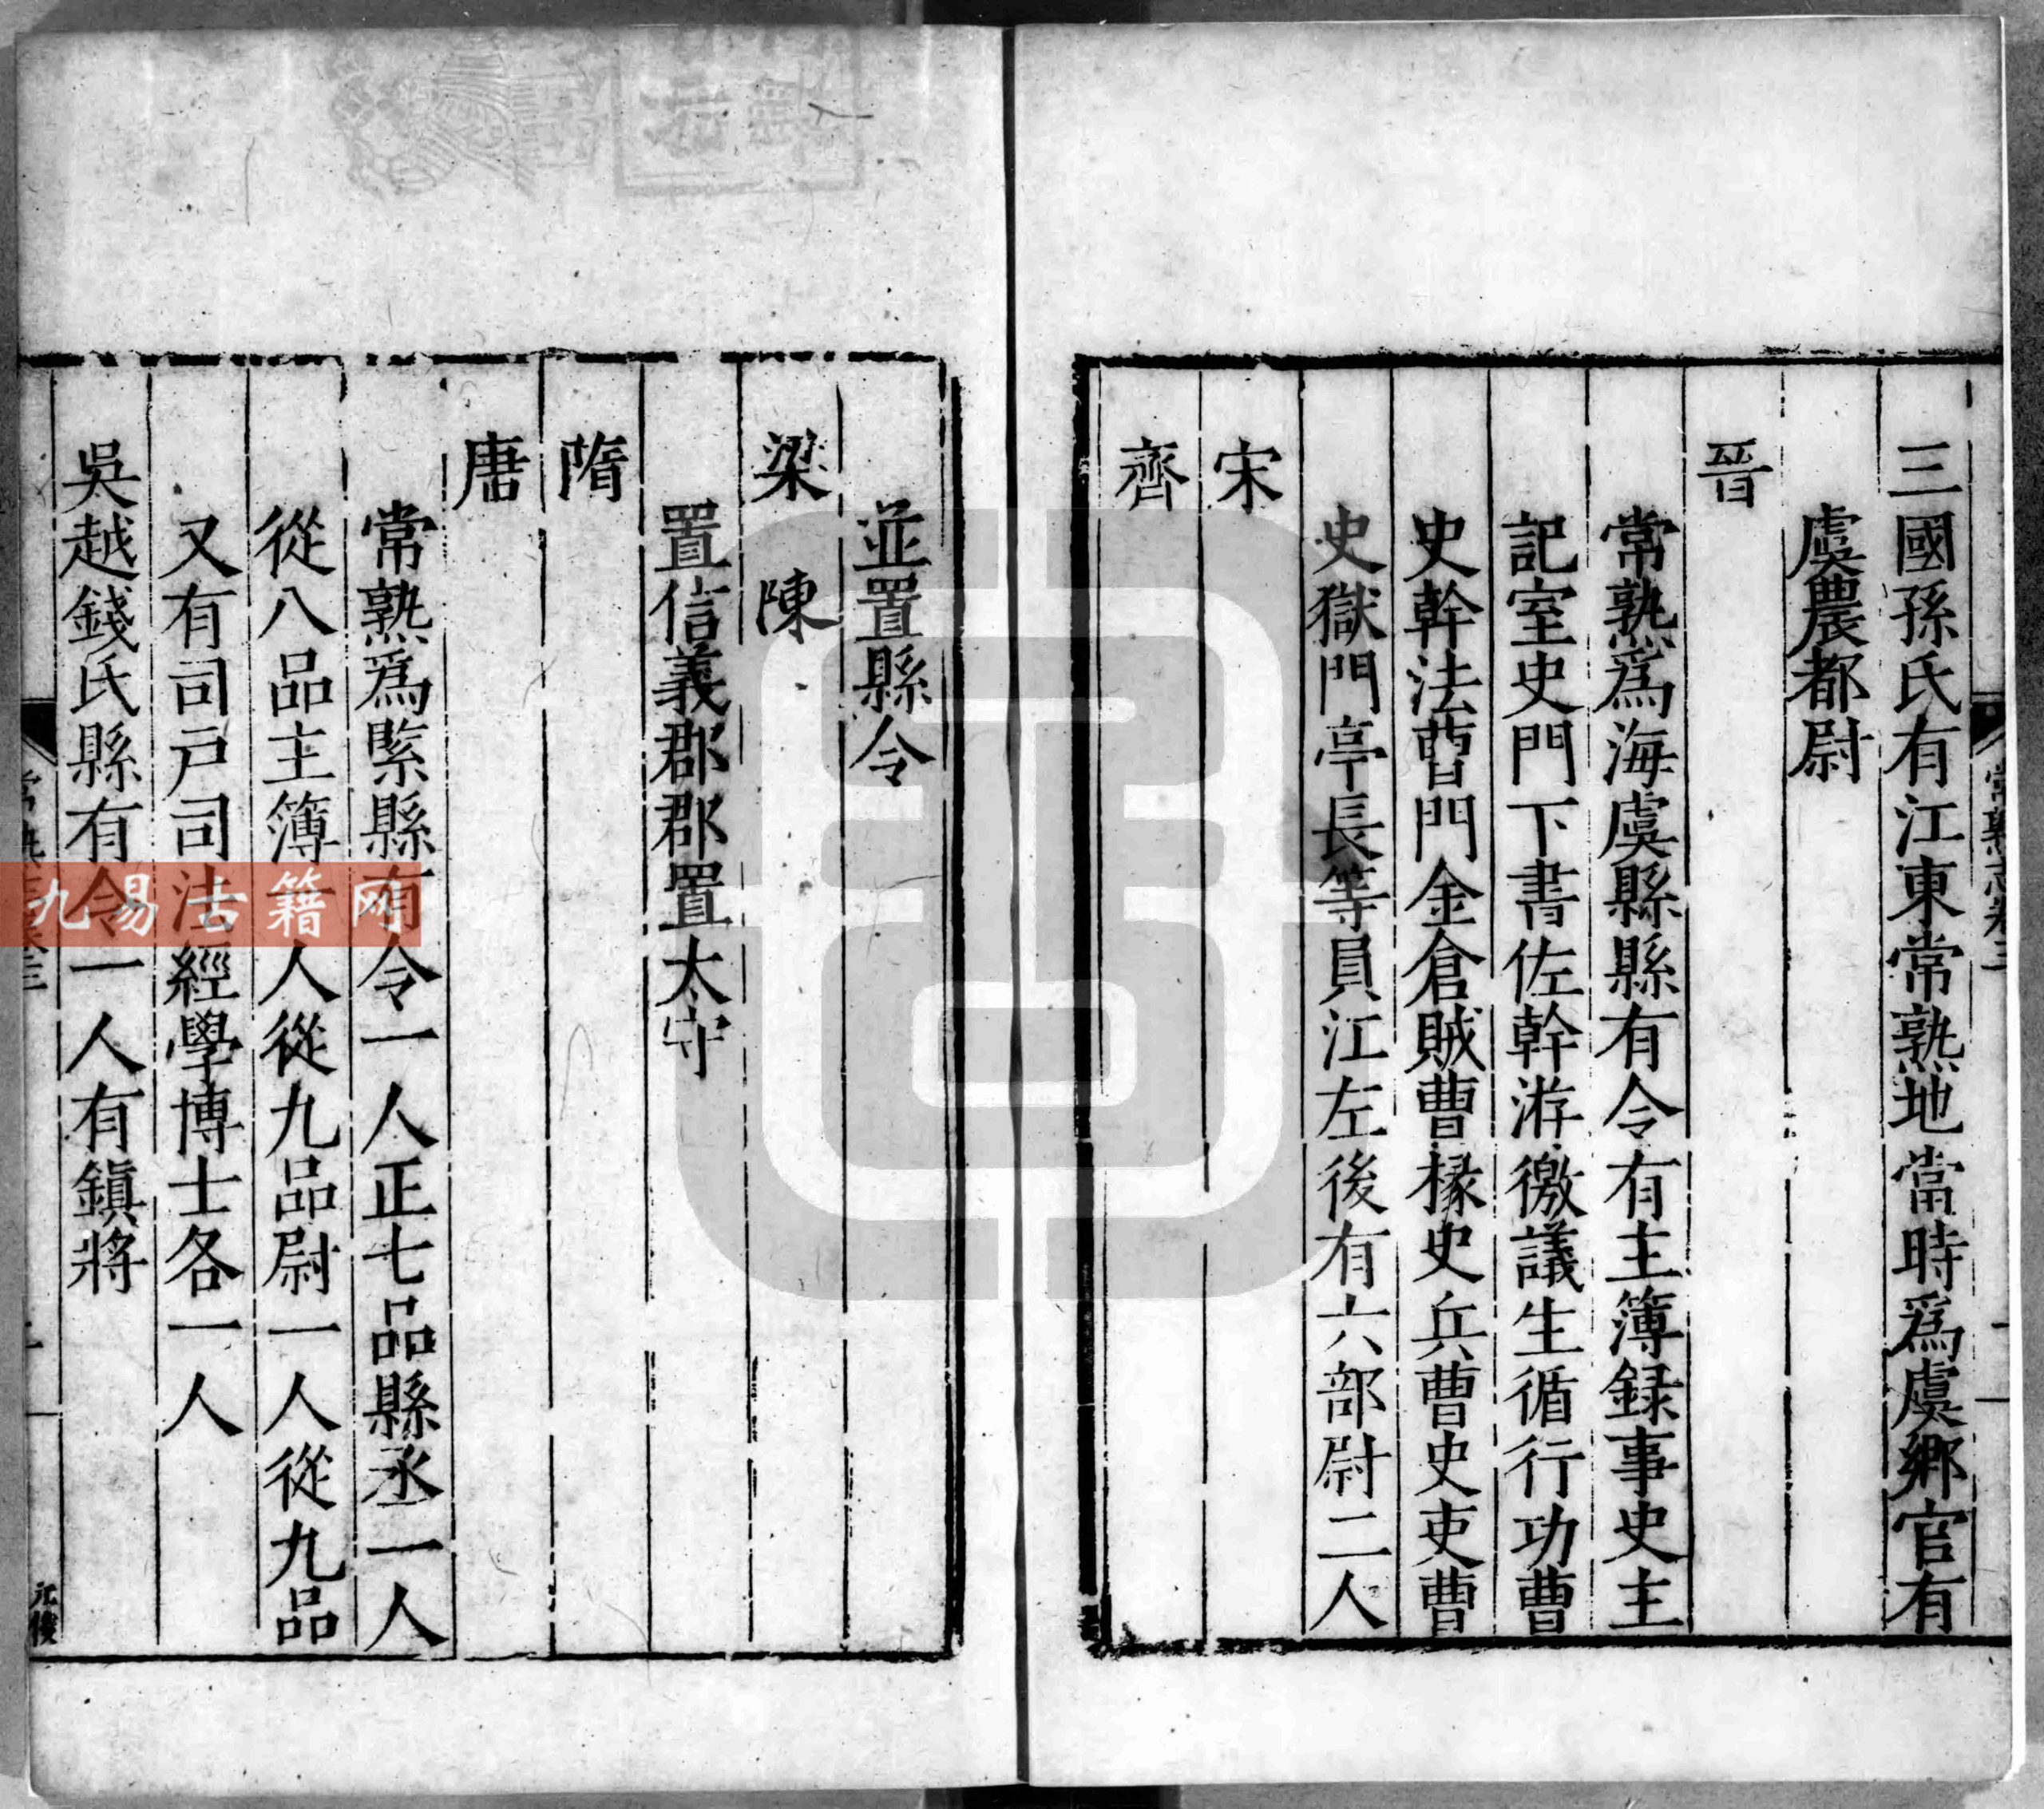 三國孫氏有江東常熟地當時爲虞鄉官有
虞農都尉
晉
常熟爲海虞縣縣有令有主簿録事史主
記室史門下書佐幹游徼議生循行功曹
史幹法曹門金倉賊曹掾史兵曹史吏曹
史獄門亭長等員江左後有六部尉二人
宋
齊
並置縣令
梁 陳
置信義郡郡置太守
隋
唐
常熟爲緊縣縣有令一人正七品縣丞一人
從八品主簿一人從九品尉一人從九品
又有司戶司法經學博士各一人
吳越錢氏縣有令一人有鎮將
常熟志卷三
元俊
九易古籍网